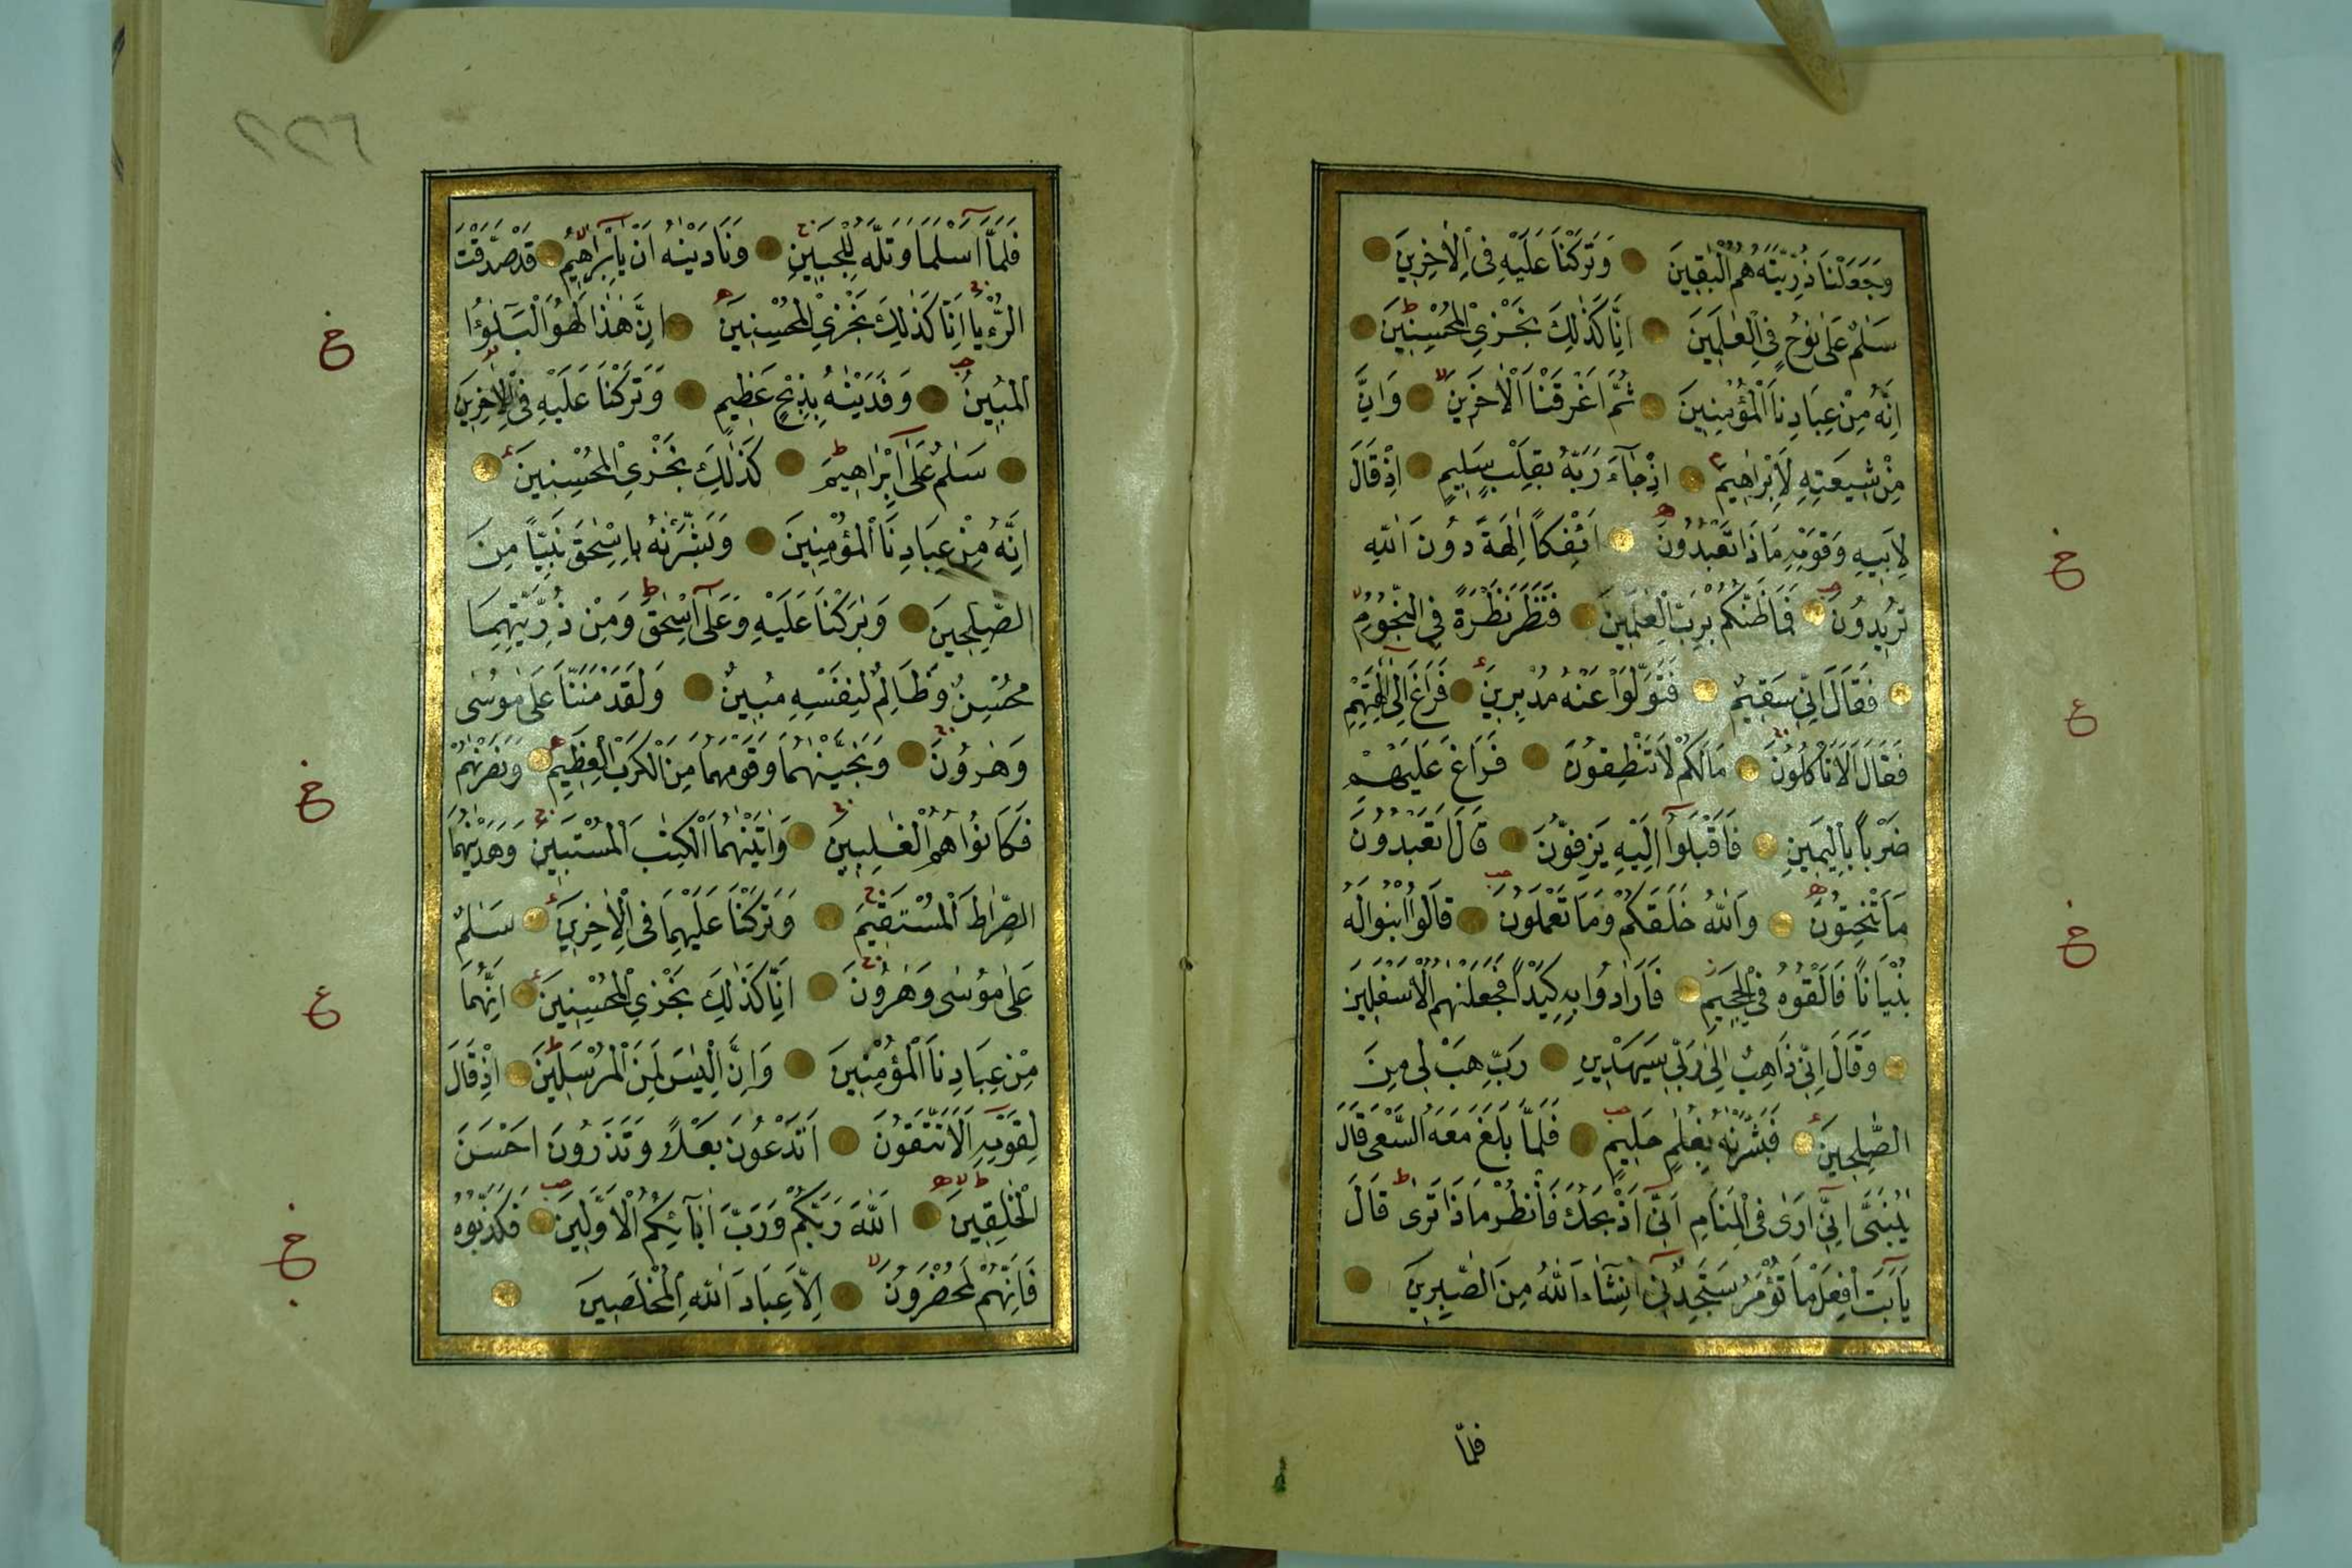 وَجَعَلْنَا ذُرِّيَّتَهُ هُمُ الْبٰقِينَ وَتَرَكْنَا عَلَيْهِ فِى الْاٰخِرِينَ
سَلٰمٌ عَلٰى نُوحٍ فِى الْعٰلَمِينَ اِنَّا كَذٰلِكَ نَجْزِى الْمُحْسِنِينَ
اِنَّهُ مِنْ عِبَادِنَا الْمُؤْمِنِينَ ثُمَّ اَغْرَقْنَا الْاٰخَرِينَ وَاِنَّ
مِنْ شِيعَتِهِ لَاِبْرٰهِيمَ اِذْ جَاءَ رَبَّهُ بِقَلْبٍ سَلِيمٍ اِذْ قَالَ
لِاَبِيهِ وَقَوْمِهِ مَاذَا تَعْبُدُونَ اَئِفْكًا اٰلِهَةً دُونَ اللّٰهِ
تُرِيدُونَ فَمَا ظَنُّكُمْ بِرَبِّ الْعٰلَمِينَ فَنَظَرَ نَظْرَةً فِى النُّجُومِ
فَقَالَ اِنِّى سَقِيمٌ فَتَوَلَّوْا عَنْهُ مُدْبِرِينَ فَرَاغَ اِلٰى اٰلِهَتِهِمْ
فَقَالَ اَلَا تَأْكُلُونَ مَا لَكُمْ لَا تَنْطِقُونَ فَرَاغَ عَلَيْهِمْ
ضَرْبًا بِالْيَمِينِ فَاَقْبَلُوا اِلَيْهِ يَزِفُّونَ قَالَ اَتَعْبُدُونَ
مَا تَنْحِتُونَ وَاللّٰهُ خَلَقَكُمْ وَمَا تَعْمَلُونَ قَالُوا ابْنُوا لَهُ
بُنْيَانًا فَاَلْقُوهُ فِى الْجَحِيمِ فَاَرَادُوا بِهِ كَيْدًا فَجَعَلْنٰهُمُ الْاَسْفَلِينَ
وَقَالَ اِنِّى ذَاهِبٌ اِلٰى رَبِّى سَيَهْدِينِ رَبِّ هَبْ لِى مِنَ
الصّٰلِحِينَ فَبَشَّرْنٰهُ بِغُلٰمٍ حَلِيمٍ فَلَمَّا بَلَغَ مَعَهُ السَّعْىَ قَالَ
يٰبُنَىَّ اِنِّى اَرٰى فِى الْمَنَامِ اَنِّى اَذْبَحُكَ فَانْظُرْ مَاذَا تَرٰى قَالَ
يَا اَبَتِ افْعَلْ مَا تُؤْمَرُ سَتَجِدُنِى اِنْ شَاءَ اللّٰهُ مِنَ الصّٰبِرِينَ
فلمّا
٢٢٦
فَلَمَّا اَسْلَمَا وَتَلَّهُ لِلْجَبِينِ وَنَادَيْنٰهُ اَنْ يَا اِبْرٰهِيمُ قَدْ صَدَّقْتَ
الرُّءْيَا اِنَّا كَذٰلِكَ نَجْزِى الْمُحْسِنِينَ اِنَّ هٰذَا لَهُوَ الْبَلٰؤُا
الْمُبِينُ وَفَدَيْنٰهُ بِذِبْحٍ عَظِيمٍ وَتَرَكْنَا عَلَيْهِ فِى الْاٰخِرِينَ
سَلٰمٌ عَلٰى اِبْرَاهِيمَ كَذٰلِكَ نَجْزِى الْمُحْسِنِينَ
اِنَّهُ مِنْ عِبَادِنَا الْمُؤْمِنِينَ وَبَشَّرْنٰهُ بِاِسْحٰقَ نَبِيًّا مِنَ
الصّٰلِحِينَ وَبٰرَكْنَا عَلَيْهِ وَعَلٰى اِسْحٰقَ وَمِنْ ذُرِّيَّتِهِمَا
مُحْسِنٌ وَظَالِمٌ لِنَفْسِهِ مُبِينٌ وَلَقَدْ مَنَنَّا عَلٰى مُوسٰى
وَهٰرُونَ وَنَجَّيْنٰهُمَا وَقَوْمَهُمَا مِنَ الْكَرْبِ الْعَظِيمِ وَنَصَرْنٰهُمْ
فَكَانُوا هُمُ الْغٰلِبِينَ وَاٰتَيْنٰهُمَا الْكِتٰبَ الْمُسْتَبِينَ وَهَدَيْنٰهُمَا
الصِّرَاطَ الْمُسْتَقِيمَ وَتَرَكْنَا عَلَيْهِمَا فِى الْاٰخِرِينَ سَلٰمٌ
عَلٰى مُوسٰى وَهٰرُونَ اِنَّا كَذٰلِكَ نَجْزِى الْمُحْسِنِينَ اِنَّهُمَا
مِنْ عِبَادِنَا الْمُؤْمِنِينَ وَاِنَّ اِلْيَاسَ لَمِنَ الْمُرْسَلِينَ اِذْ قَالَ
لِقَوْمِهِ اَلَا تَتَّقُونَ اَتَدْعُونَ بَعْلًا وَتَذَرُونَ اَحْسَنَ
الْخٰلِقِينَ اَللّٰهَ رَبَّكُمْ وَرَبَّ اٰبَائِكُمُ الْاَوَّلِينَ فَكَذَّبُوهُ
فَاِنَّهُمْ لَمُحْضَرُونَ اِلَّا عِبَادَ اللّٰهِ الْمُخْلَصِينَ